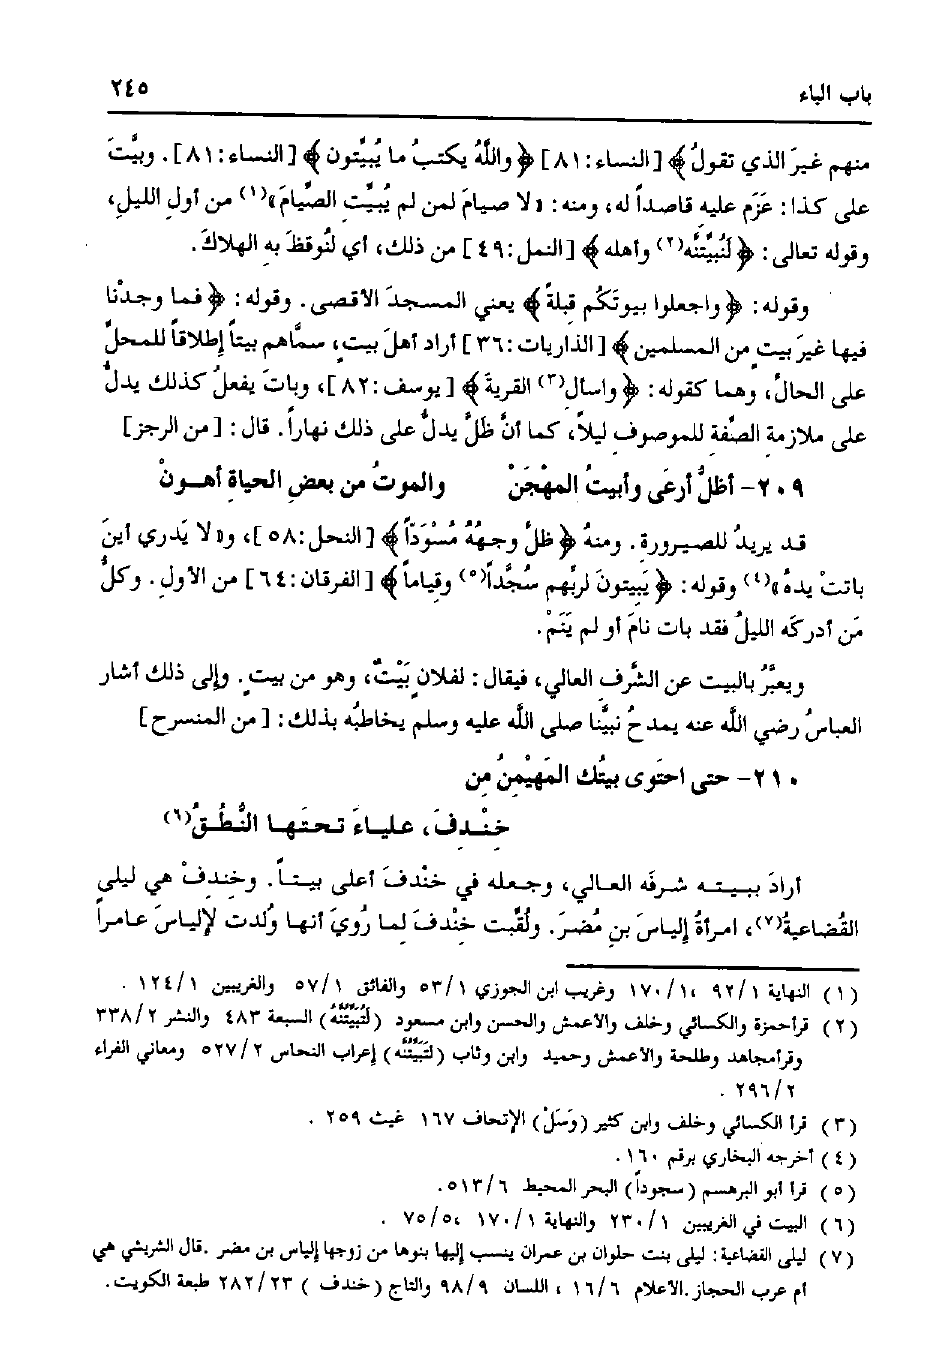 باب الباء
٢٤٥
منهم غيرَ الذي تقولُ﴾ [النساء:٨١] ﴿واللّهُ يكتبُ ما يُبيِّتون﴾ [النساء:٨١]. وبيَّتَ
على كذا: عَزَم عليهِ قاصداً له، ومنه: «لا صيامَ لمن لم يُبيِّتِ الصِّيامَ»(١) من أولِ الليلِ،
وقوله تعالى: ﴿لَنُبيِّتَنَّه(٢) وأهله﴾ [النمل:٤٩] من ذلك، أي لنُوقظَ به الهلاكَ.
وقوله: ﴿واجعلوا بيوتَكُم قبلةً﴾ يعني المسجدَ الأقصى. وقوله: ﴿فما وجدْنا
فيها غيرَ بيتٍ من المسلمين﴾ [الذاريات:٣٦] أراد أهلَ بيتٍ، سمَّاهم بيتاً إطلاقاً للمحلِّ
على الحالِّ، وهما كقوله: ﴿واسأل(٣) القريةَ﴾ [يوسف:٨٢]، وباتَ يفعلُ كذلك يدلُّ
على ملازمة الصِّفة للموصوفِ ليلاً، كما أنَّ ظلَّ يدلُّ على ذلك نهاراً. قال: [من الرجز]
٢٠٩- أظلُّ أرعَى وأبيتُ المهْجَنْ والموتُ من بعضِ الحياةِ أهـونْ
قد يريدُ للصيرورة. ومنهُ ﴿ظلَّ وجهُهُ مُسْوَدّاً﴾ [النحل:٥٨]، و«لا يَدري أينَ
باتتْ يدهُ»(٤) وقوله: ﴿يَبيتونَ لربِّهم سُجَّداً(٥) وقياماً﴾ [الفرقان:٦٤] من الأولِ. وكلُّ
مَن أدركَه الليلُ فقد بات نامَ أو لم يَنَمْ.
ويعبَّرُ بالبيت عن الشَّرف العالي، فيقال: لفلانٍ بَيْتٌ، وهو من بيتٍ. وإلى ذلك أشار
العباسُ رضي اللّه عنه يمدحُ نبيَّنا صلى اللّه عليه وسلم يخاطبُه بذلك: [من المنسرح]
٢١٠- حتى احتَوى بيتُك المَهَيْمنُ مِن
خِنْدِفَ، علياءَ تحتَـها النُّطُـقُ(٦)
أرادَ ببيتـه شرفَه العـالي، وجـعله في خنْدفَ أعلى بيتـاً. وخندِفْ هي ليلى
القُضاعيةُ(٧)، امرأةُ إلياسَ بنِ مُضرَ. ولُقِّبت خِنْدفَ لما رُويَ أنها وُلدت لإلياسَ عامراً
(١) النهاية ١/ ٩٢ ،١/ ١٧٠ وغريب ابن الجوزي ١/ ٥٣ والفائق ١/ ٥٧ والغريبين ١/ ١٢٤ .
(٢) قرأحمزة والكسائي وخلف والأعمش والحسن وابن مسعود (لَتُبَيِّتُنَّهُ) السبعة ٤٨٣ والنشر ٢/ ٣٣٨
وقرأمجاهد وطلحة والأعمش وحميد وابن وثاب (لَيُبَيِّتُنَّه) إعراب النحاس ٢/ ٥٢٧ ومعاني الفراء
٢/ ٢٩٦ .
(٣) قرأ الكسائي وخلف وابن كثير (وَسَلْ) الإتحاف ١٦٧ غيث ٢٥٩ .
(٤) أخرجه البخاري برقم ١٦٠.
(٥) قرأ أبو البرهسم (سجوداً) البحر المحيط ٦/ ٥١٣.
(٦) البيت في الغريبين ١/ ٢٣٠ والنهاية ١/ ١٧٠ ،٥/ ٧٥ .
(٧) ليلى القضاعية: ليلى بنت حلوان بن عمران ينسب إليها بنوها من زوجها إلياس بن مضر .قال الشريشي هي
أم عرب الحجاز .الأعلام ٦/ ١٦ ، اللسان ٩/ ٩٨ والتاج (خندف ) ٢٣/ ٢٨٢ طبعة الكويت.